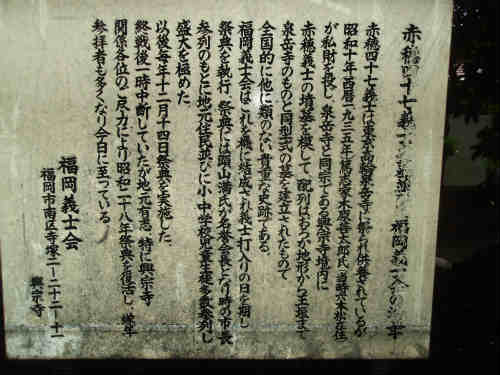 赤穂四十七義士 福岡義士会の沿革
赤穂四十七義士は東京高輪泉岳寺に祭られ供養されているが
昭和十年(西暦一九三五年)篤志家木原善太郎氏(当時六本松在住)
が私財を投じ泉岳寺と同宗である興宗寺境内に
赤穂義士の墳墓を模して配列はもちろん地形から玉垣まで
泉岳寺のものと同型式の墓を建立されたもので
全国的に他に類のない貴重な史跡である。
福岡義士会はこれを機に結成され義士打入りの日を期し
祭典を執行、祭典には頭山満氏が名誉会長となり時の市長
参列のもとに地元住民並びに小・中学校児童生徒多数参列し
盛大を極めた
以後毎年十二月十四日祭典を実施した。
終戦後一時中断していたが地元有志、特に興宗寺
関係各位のご尽力により昭和二十八年祭典を復活し、爾年
参拝者も多くなり今日に至っている
福岡義士会
福岡市南区寺塚二ー二十二ー十一
興宗寺